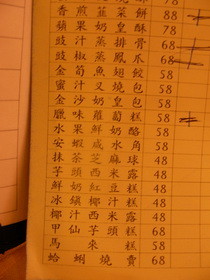 香煎韮菜餅 88
蘋果奶皇酥 78
豉汁蒸排骨 68
豉椒蒸鳳爪 68
金筍魚翅餃 58
蜜汁叉燒包 58
金沙奶皇包 58
臘味蘿蔔糕 58
水果鮮奶酪 58
安蝦咸水角 58
抹茶芝麻球 48
芋頭西米露 48
鮮奶紅豆糕 48
冰鎮楊汁糕 48
椰汁西米露 48
椰汁仙草 68
馬來糕 48
蛤蜊燒賣 68